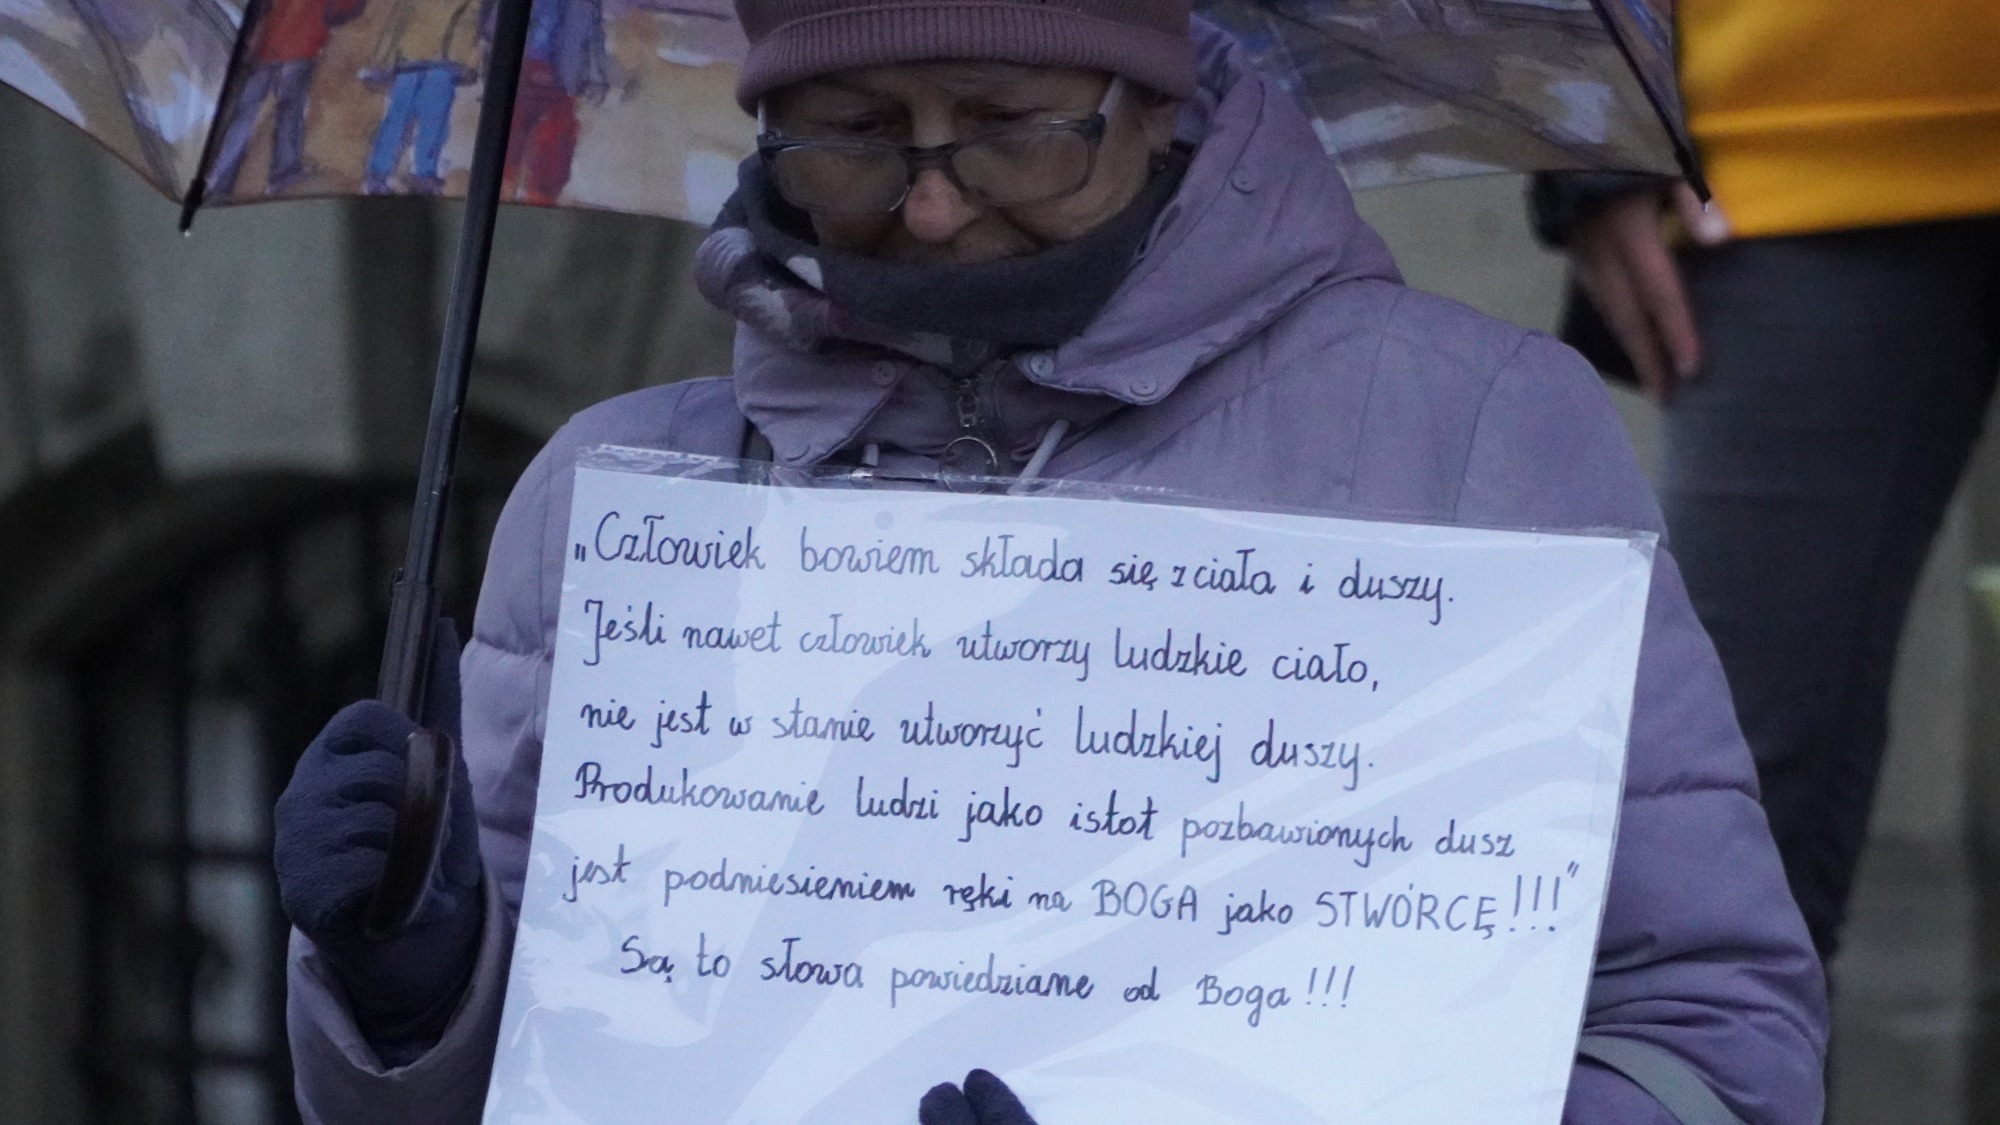 „Człowiek bowiem składa się z ciała i duszy.
Jeśli nawet człowiek utworzy ludzkie ciało,
nie jest w stanie utworzyć ludzkiej duszy.
Produkowanie ludzi jako istot pozbawionych dusz
jest podniesieniem ręki na BOGA jako STWÓRCĘ!!!"
Są to słowa powiedziane od Boga!!!